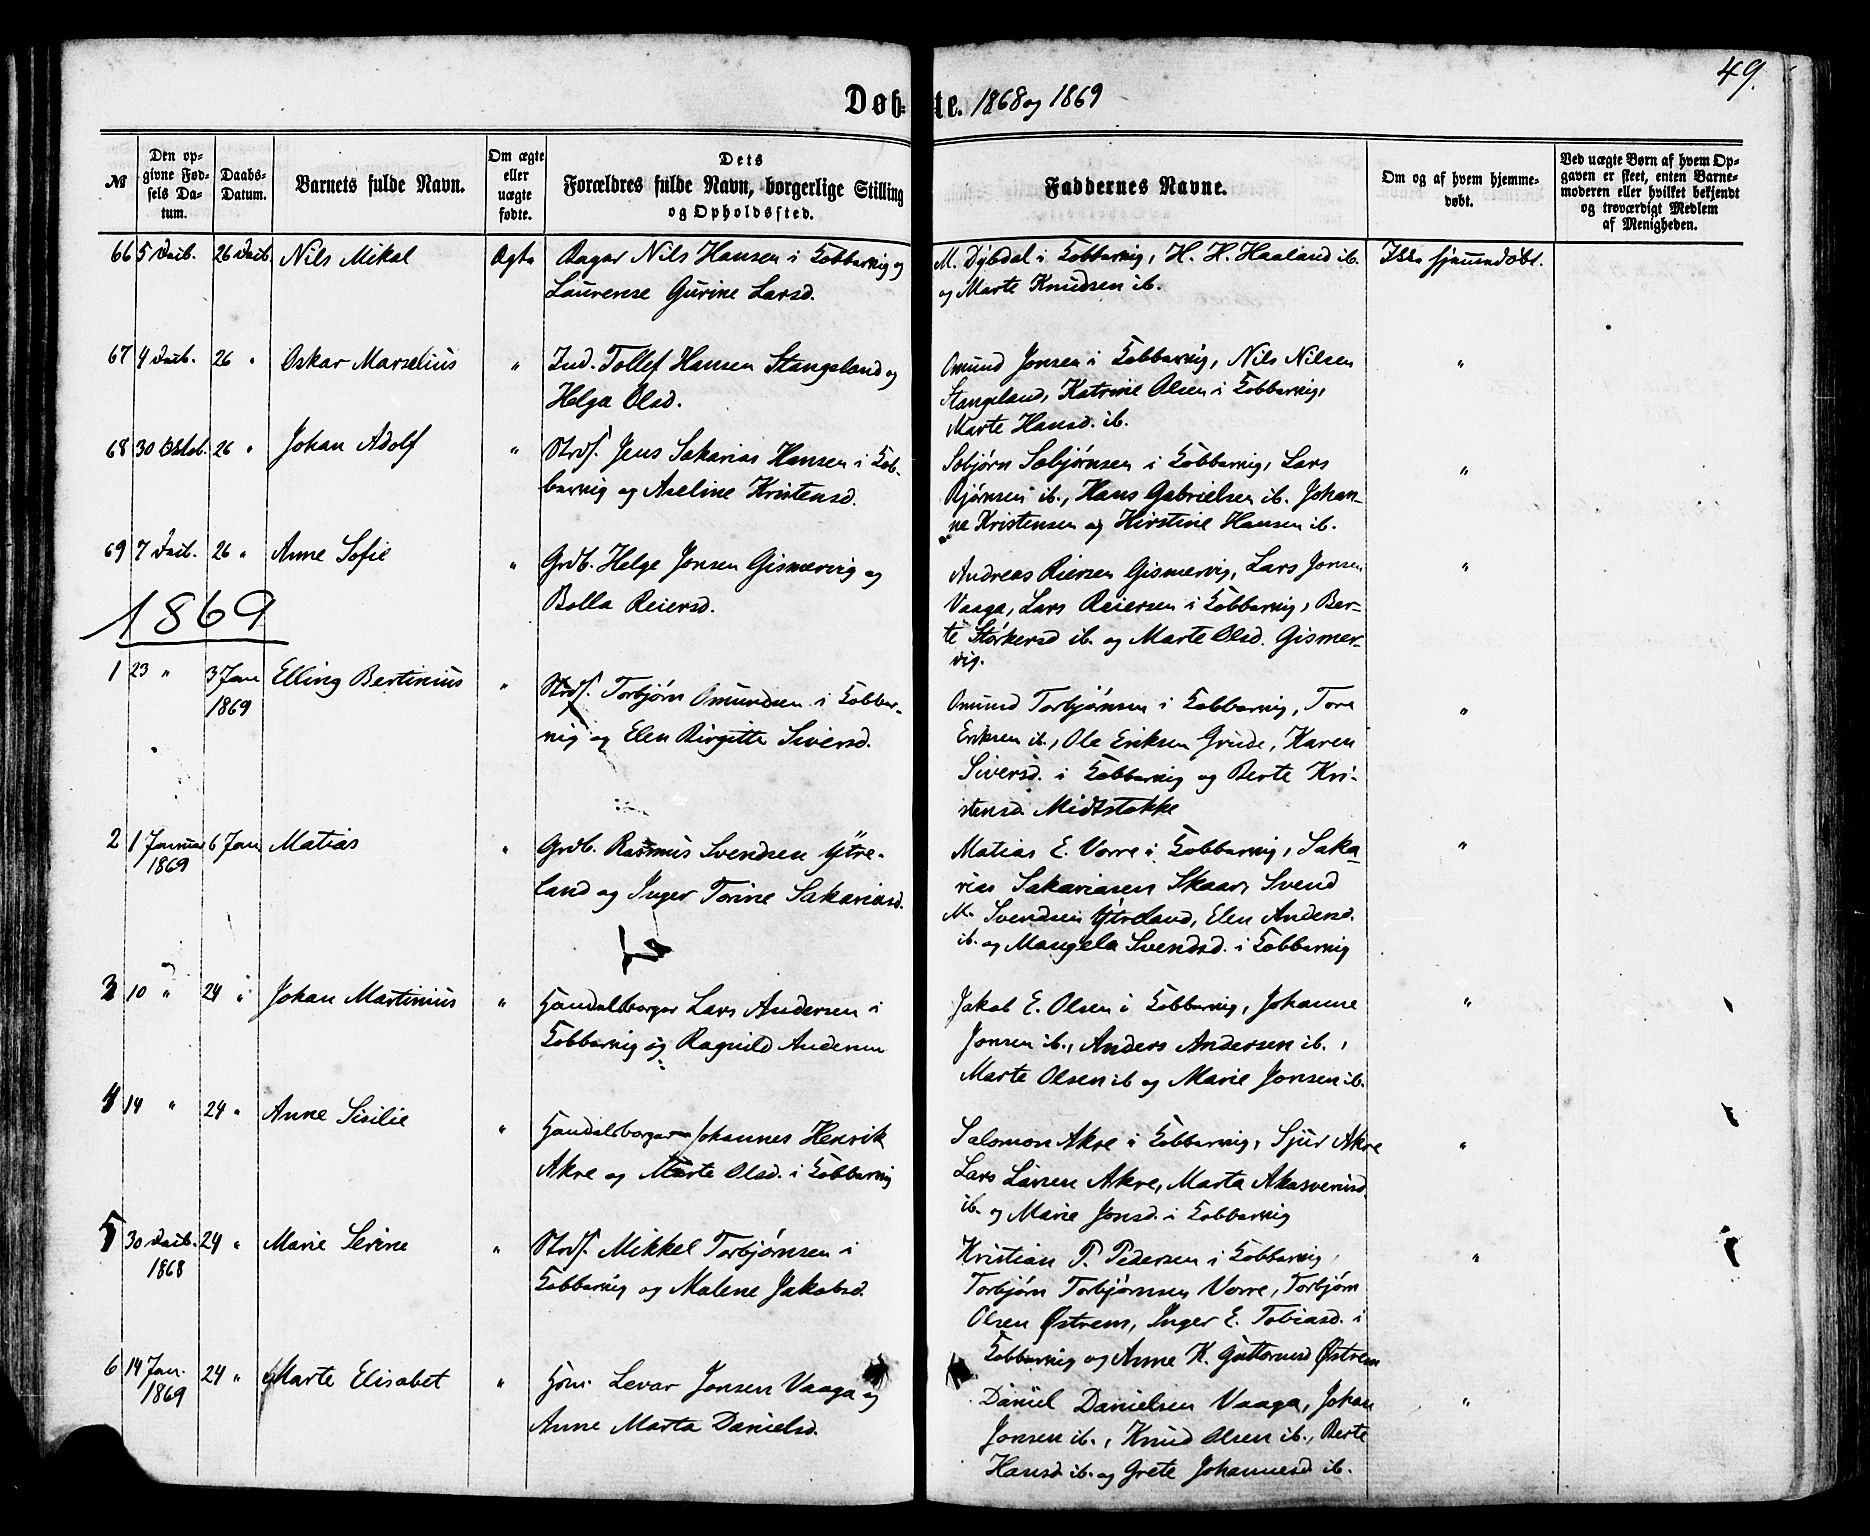 49.
Døbte. 1868 og 1869
№
Den opgivne Fødsels Datum.
Daabs-Datum.
Barnets fulde Navn.
Om ægte eller uægte fødte.
Dets Forældres fulde Navn, borgerlige Stilling og Opholdssted.
Faddernes Navne.
Om og af hvem hjemmedøbt.
Ved uægte Børn af hvem Opgaven er skeet, enten Barnemoderen eller hvilket bekjendt og troværdigt Medlem af Menigheden.
66 5 Decb. 26 Decb. Nils Mikal Ægte Bager Nils Hansen i Kobbervig og
Laurense Gurine Larsd.
M. Dybdal i Kobbervig, H. H. Haaland ib.
og Marte Knudsen ib.
Ikke hjemmedøbt.
67 4 Decb. 26 " Oskar Marselius " Ind. Tollef Hansen Stangeland og
Helga Olsd.
Omund Jonsen i Kobbervig, Nils Nilsen
Stangeland, Katrine Olsen i Kobbervig,
Marte Hansd. ib.
"
68 30 Oktob. 26 " Johan Adolf " Strds. Jens Sakarias Hansen i Kob-
bervig og Aseline Kristensd.
Sebjørn Sebjørnsen i Kobbervig, Lars
Bjørnsen ib., Hans Gabrielsen ib. Johan-
ne Kristensen og Kirstine Hansen ib.
"
69 7 Decb. 26 " Anne Sofie " Grdb. Helge Jonsen Gismervig og
Bolla Reiersd.
Andreas Riersen Gismervig, Lars Jonsen
Vaaga, Lars Reiersen i Kobbervig, Ber-
te Størkersd ib. og Marte Olsd. Gismer-
vig.
"
1869
1 23 " 3 Jan 1869 Elling Bertinius " Strds. Torbjørn Omundsen i Kobber-
vig og Elen Birgitte Siversd.
Omund Torbjørnsen i Kobbervig, Tore
Eriksen ib., Ole Eriksen Grude, Karen
Siversd. i Kobbervig og Berte Kri-
stensd Midtstokke
"
2 1 Januar 1869 6 Jan Matias " Grdb. Rasmus Svendsen Ytre-
land og Inger Torine Sakariasd.
Matias E. Vorre i Kobbervig, Saka-
rias Sakariasen Skaar, Svend
M. Svendsen Ytreland, Elen Andersd.
ib. og Mangela Svendsd. i Kobbervig
"
3 10 " 24 " Johan Martinius " Handelsborger Lars Andersen i
Kobbervig og Ragnild Andersen
Jakob E. Olsen i Kobbervig, Johanne
Jonsen ib., Anders Andersen ib.,
Marte Olsen ib og Marie Jonsen ib.
"
4 14 " 24 " Anne Sisilie " Handelsborger Johannes Henrik
Akre og Marte Olsd. i Kobbervig
Salomon Akre i Kobbervig, Sjur Akre
Lars Larsen Akre, Marta Akasverusd
ib. og Marie Jonsd. i Kobbervig
"
5 30 Decb. 1868 24 " Marie Serine " Strds. Mikkel Torbjørnsen i
Kobbervig og Malene Jakobsd.
Kristian P. Pedersen i Kobbervig,
Torbjørn Torbjørnsen Vorre, Torbjørn
Olsen Østrem, Inger E. Tobiasd. i
Kobbervig og Anne K. Guttormsd Østrem
"
6 14 Jan. 1869 24 " Marte Elisabet " Levar Jonsen Vaaga og
Anne Marta Danielsd.
Daniel Danielsen Vaaga, Johan
Jonsen ib., Knud Olsen ib., Berte
Hansd ib. og Grete Johannesd ib.
"